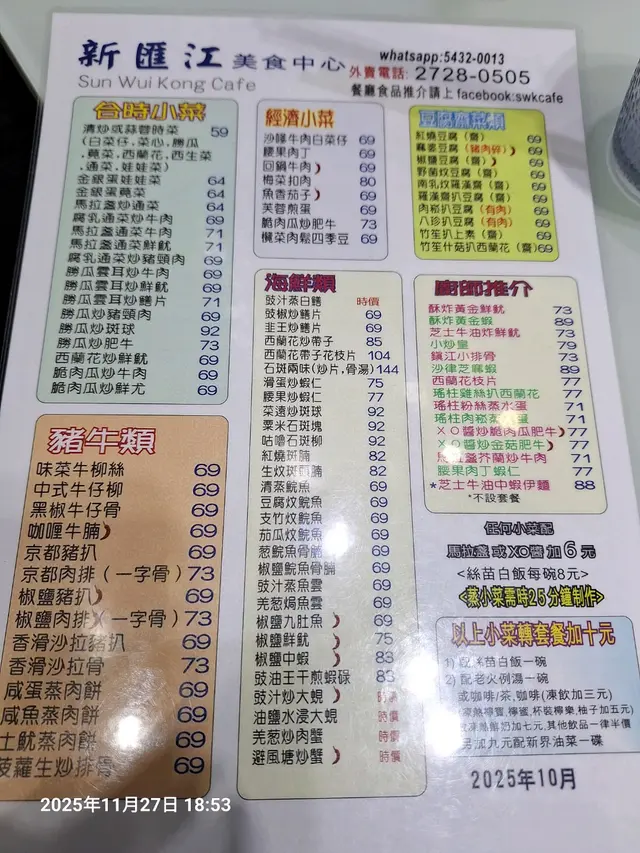 新匯江美食中心
Sun Wui Kong Cafe
whatsapp:5432-0013
外賣電話: 2728-0505
餐廳食品推介請上 facebook:swkcafe
合時小菜
清炒或蒜蓉時菜 59
(白菜仔.菜心.勝瓜
.莧菜.西蘭花.西生菜
.通菜.娃娃菜)
金銀蛋娃娃菜 64
金銀蛋莧菜 64
馬拉盞炒通菜 64
腐乳通菜炒牛肉 69
馬拉盞通菜牛肉 71
馬拉盞通菜鮮魷 71
腐乳通菜炒豬頸肉 69
勝瓜雲耳炒牛肉 69
勝瓜雲耳炒鮮魷 69
勝瓜雲耳炒鱔片 71
勝瓜炒豬頸肉 69
勝瓜炒斑球 92
勝瓜炒肥牛 73
西蘭花炒鮮魷 69
脆肉瓜炒牛肉 69
脆肉瓜炒鮮尤 69
豬牛類
味菜牛柳絲 69
中式牛仔柳 69
黑椒牛仔骨 69
咖喱牛腩 69
京都豬扒 69
京都肉排(一字骨) 73
椒鹽豬扒 69
椒鹽肉排(一字骨) 73
香滑沙拉豬扒 69
香滑沙拉骨 73
咸蛋蒸肉餅 69
咸魚蒸肉餅 69
土魷蒸肉餅 69
菠蘿生炒排骨 69
經濟小菜
沙嗲牛肉白菜仔 69
腰果肉丁 69
回鍋牛肉 69
梅菜扣肉 80
魚香茄子 69
芙蓉煎蛋 69
脆肉瓜炒肥牛 73
欖菜肉鬆四季豆 69
海鮮類
豉汁蒸白鱔 時價
豉椒炒鱔片 69
韭王炒鱔片 69
西蘭花炒帶子 85
西蘭花帶子花枝片 104
石斑兩味(炒片.骨湯) 144
滑蛋炒蝦仁 75
腰果炒蝦仁 77
菜遠炒斑球 92
粟米石斑塊 92
咕嚕石斑柳 92
紅燒斑腩 82
生炆斑頭腩 82
清蒸鯇魚 69
豆腐炆鯇魚 69
支竹炆鯇魚 69
茄瓜炆鯇魚 69
葱鯇魚骨腩 69
椒鹽鯇魚骨腩 69
豉汁蒸魚雲 69
羌葱焗魚雲 69
椒鹽九肚魚 69
椒鹽鮮魷 75
椒鹽中蝦 83
豉油王干煎蝦碌 83
豉汁炒大蜆 時價
油鹽水浸大蜆 時價
羌葱炒肉蟹 時價
避風塘炒蟹 時價
豆腐齋菜類
紅燒豆腐(齋) 69
麻婆豆腐(豬肉碎) 69
椒鹽豆腐(齋) 69
野菌炆豆腐(齋) 69
南乳炆羅漢齋(齋) 69
羅漢齋扒豆腐(齋) 69
肉崧扒豆腐(有肉) 69
八珍扒豆腐(有肉) 69
竹笙扒上素(齋) 69
竹笙什菇扒西蘭花(齋)69
廚師推介
酥炸黃金鮮魷 73
酥炸黃金蝦 89
芝士牛油炸鮮魷 73
小炒皇 79
鎮江小排骨 73
沙律芝麻蝦 89
西蘭花枝片 77
瑤柱雞絲扒西蘭花 77
瑤柱粉絲蒸水蛋 71
瑤柱肉崧蒸水蛋 71
XO醬炒脆肉瓜肥牛 77
XO醬炒金菇肥牛 77
馬拉盞芥蘭炒牛肉 71
腰果肉丁蝦仁 77
*芝士牛油中蝦伊麵 88
*不設套餐
任何小菜配
馬拉盞或XO醬加6元
<絲苗白飯每碗8元>
<蒸小菜需時25分鐘制作>
以上小菜轉套餐加十元
1) 配絲苗白飯一碗
2) 配老火例湯一碗
或咖啡/茶,咖啡(凍飲加三元)
2025年10月
2025年11月27日 18:53